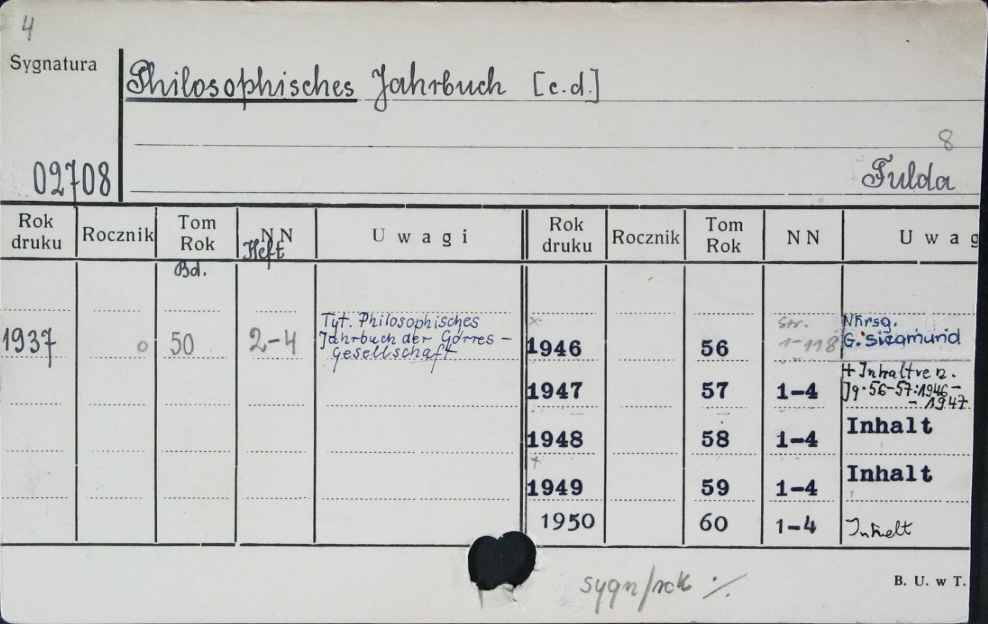 4
Sygnatura
Philosophisches Jahrbuch [c.d.]
8
02708
Fulda
Rok druku Rocznik Tom Rok NN Uwagi Rok druku Rocznik Tom Rok NN Uwag
Bd. Heft
1937 o 50 2-4 Tyt. Philosophisches
Jahrbuch der Görres-
gesellschaft
1946 56 str. 1-118 Hrsg.
G. Siegmund
1947 57 1-4 + Inhaltverz.
Jg. 56-57: 1946-
- 1947
1948 58 1-4 Inhalt
1949 59 1-4 Inhalt
1950 60 1-4 Inhalt
sygn/rok ·/.
B. U. w T.